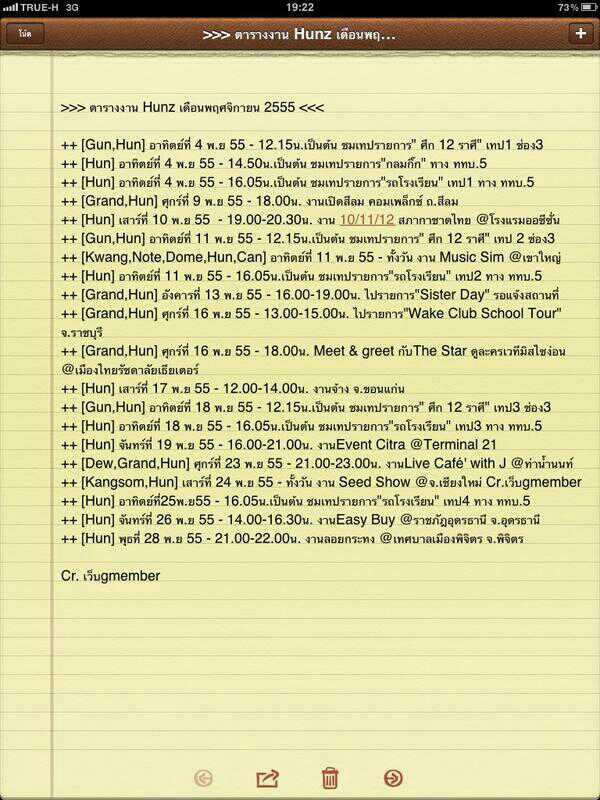 TRUE-H 3G 19:22 73%
โน้ต >>> ตารางงาน Hunz เดือนพฤ... +
>>> ตารางงาน Hunz เดือนพฤศจิกายน 2555 <<<
++ [Gun,Hun] อาทิตย์ที่ 4 พ.ย 55 - 12.15น.เป็นต้น ชมเทปรายการ" ศึก 12 ราศี" เทป1 ช่อง3
++ [Hun] อาทิตย์ที่ 4 พ.ย 55 - 14.50น.เป็นต้น ชมเทปรายการ"กลมกิ๊ก" ทาง ททบ.5
++ [Hun] อาทิตย์ที่ 4 พ.ย 55 - 16.05น.เป็นต้น ชมเทปรายการ"รถโรงเรียน" เทป1 ทาง ททบ.5
++ [Grand,Hun] ศุกร์ที่ 9 พ.ย 55 - 18.00น. งานเปิดสีลม คอมเพล็กซ์ ถ.สีลม
++ [Hun] เสาร์ที่ 10 พ.ย 55  - 19.00-20.30น. งาน 10/11/12 สภากาชาดไทย @โรงแรมออซีซั่น
++ [Gun,Hun] อาทิตย์ที่ 11 พ.ย 55 - 12.15น.เป็นต้น ชมเทปรายการ" ศึก 12 ราศี" เทป 2 ช่อง3
++ [Kwang,Note,Dome,Hun,Can] อาทิตย์ที่ 11 พ.ย 55 - ทั้งวัน งาน Music Sim @เขาใหญ่
++ [Hun] อาทิตย์ที่ 11 พ.ย 55 - 16.05น.เป็นต้น ชมเทปรายการ"รถโรงเรียน" เทป2 ทาง ททบ.5
++ [Grand,Hun] อังคารที่ 13 พ.ย 55 - 16.00-19.00น. ไปรายการ"Sister Day" รอแจ้งสถานที่
++ [Grand,Hun] ศุกร์ที่ 16 พ.ย 55 - 13.00-15.00น. ไปรายการ"Wake Club School Tour"
จ.ราชบุรี
++ [Grand,Hun] ศุกร์ที่ 16 พ.ย 55 - 18.00น. Meet & greet กับThe Star ดูละครเวทีมิสไซง่อน
@เมืองไทยรัชดาลัยเธียเตอร์
++ [Hun] เสาร์ที่ 17 พ.ย 55 - 12.00-14.00น. งานจ้าง จ.ขอนแก่น
++ [Gun,Hun] อาทิตย์ที่ 18 พ.ย 55 - 12.15น.เป็นต้น ชมเทปรายการ" ศึก 12 ราศี" เทป3 ช่อง3
++ [Hun] อาทิตย์ที่ 18 พ.ย 55 - 16.05น.เป็นต้น ชมเทปรายการ"รถโรงเรียน" เทป3 ทาง ททบ.5
++ [Hun] จันทร์ที่ 19 พ.ย 55 - 16.00-21.00น. งานEvent Citra @Terminal 21
++ [Dew,Grand,Hun] ศุกร์ที่ 23 พ.ย 55 - 21.00-23.00น. งานLive Café' with J @ท่าน้ำนนท์
++ [Kangsom,Hun] เสาร์ที่ 24 พ.ย 55 - ทั้งวัน งาน Seed Show @จ.เชียงใหม่ Cr.เว็บgmember
++ [Hun] อาทิตย์ที่25พ.ย 55 - 16.05น.เป็นต้น ชมเทปรายการ"รถโรงเรียน" เทป4 ทาง ททบ.5
++ [Hun] จันทร์ที่ 26 พ.ย 55 - 14.00-16.30น. งานEasy Buy @ราชภัฎอุดรธานี จ.อุดรธานี
++ [Hun] พุธที่ 28 พ.ย 55 - 21.00-22.00น. งานลอยกระทง @เทศบาลเมืองพิจิตร จ.พิจิตร
Cr. เว็บgmember